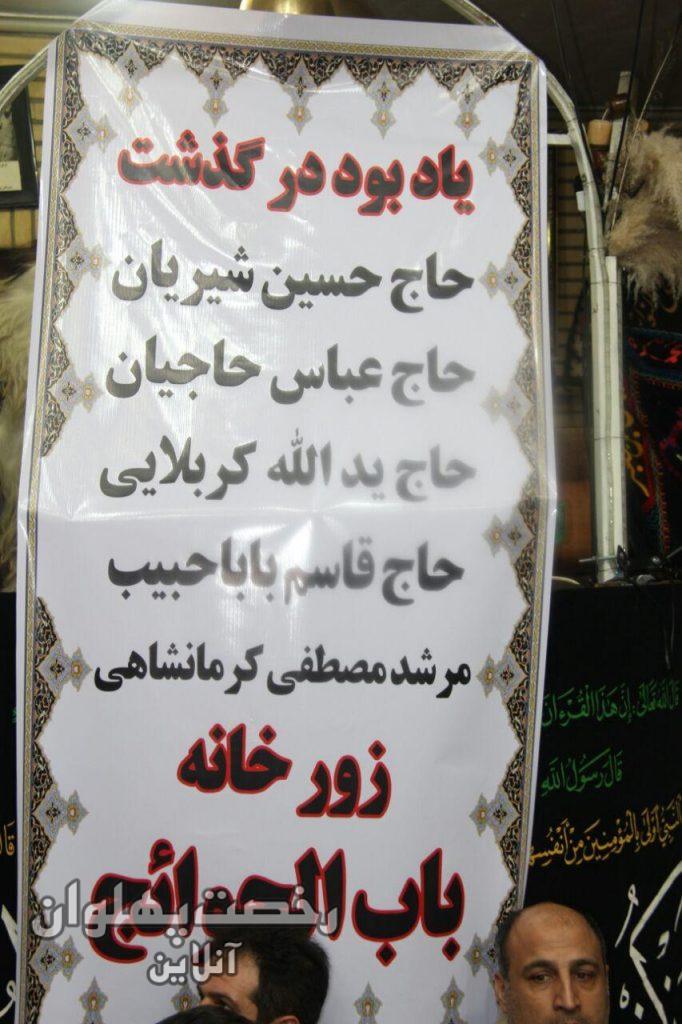 یاد بود در گذشت
حاج حسین شیریان
حاج عباس حاجیان
حاج ید الله کربلایی
حاج قاسم باباحبیب
مرشد مصطفی کرمانشاهی
زور خانه
باب الحوائج
رخصت پهلوان
آنلاین
قال الله تعالی: إن هذا القرءان
قال رسول الله
النبي أولى بالمؤمنين من أنفسهم